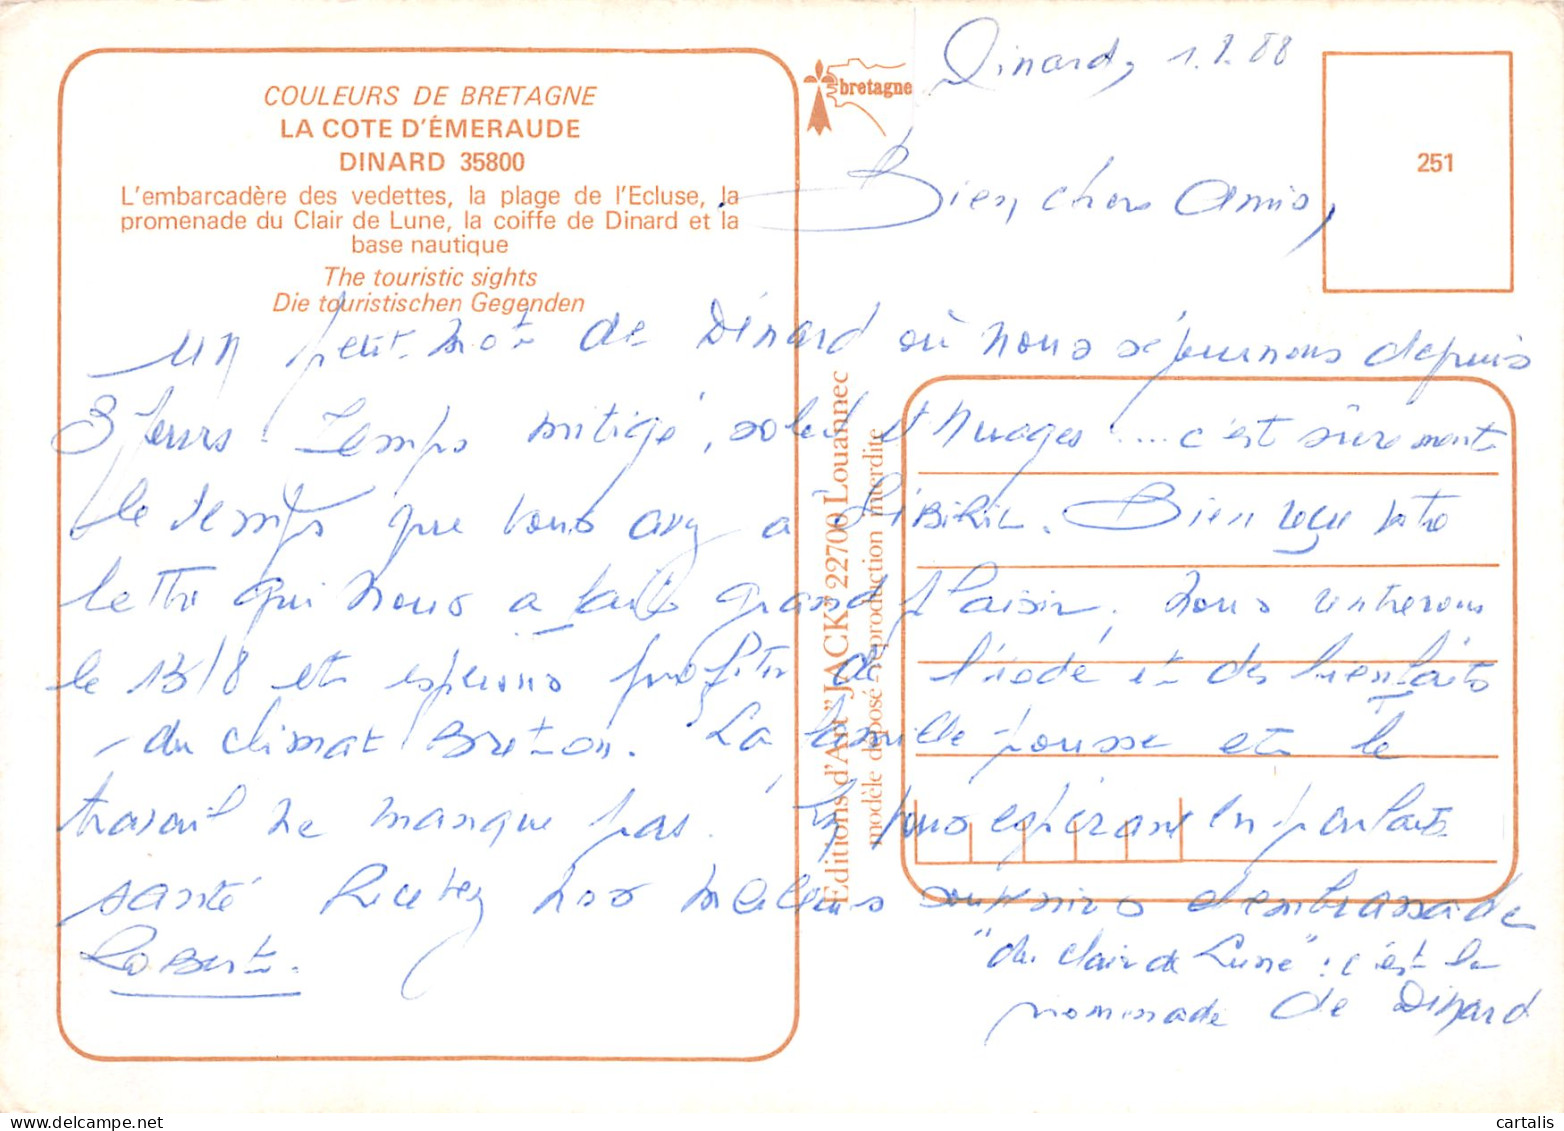 COULEURS DE BRETAGNE
LA COTE D'ÉMERAUDE
DINARD 35800
L'embarcadère des vedettes, la plage de l'Ecluse, la
promenade du Clair de Lune, la coiffe de Dinard et la
base nautique
The touristic sights
Die touristischen Gegenden
bretagne
251
Editions d'Art "JACK" 22700 Louannec
modèle déposé - reproduction interdite
Dinard, 1.8.88
Bien chers Amis,
Un petit mot de Dinard où nous séjournons depuis
3 jours. Temps mitigé, soleil et nuages .... c'est sûrement
le temps que vous avez à. Bien reçu votre
lettre qui nous a fait grand plaisir, nous rentrerons
le 13/8 et espérons profiter de l'iode et des bienfaits
du climat Breton. La famille pousse et le
travail ne manque pas. En vous espérant en parfaite
santé Recevez nos meilleurs souvenirs d'embrassade
"du clair de Lune" : c'est la
promenade de Dinard
Robert.
cartalis